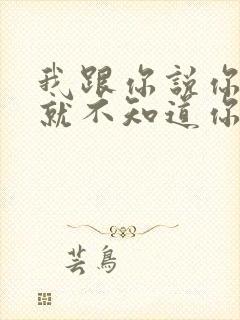 我跟你説你
就不知道你
芸鳥